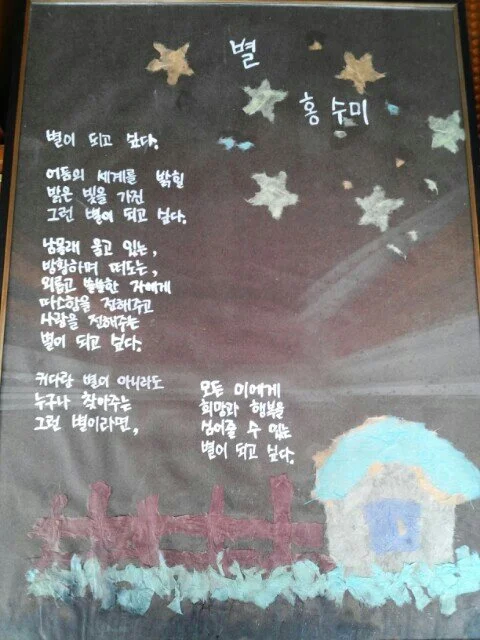 별
홍수미
별이 되고 싶다.
어둠의 세계를 밝힐
밝은 빛을 가진
그런 별이 되고 싶다.
남몰래 울고 있는,
방황하며 떠도는,
외롭고 쓸쓸한 자에게
따스함을 전해주고
사랑을 전해주는
별이 되고 싶다.
커다란 별이 아니라도
누구나 찾아주는
그런 별이라면,
모든 이에게
희망과 행복을
심어줄 수 있는
별이 되고 싶다.